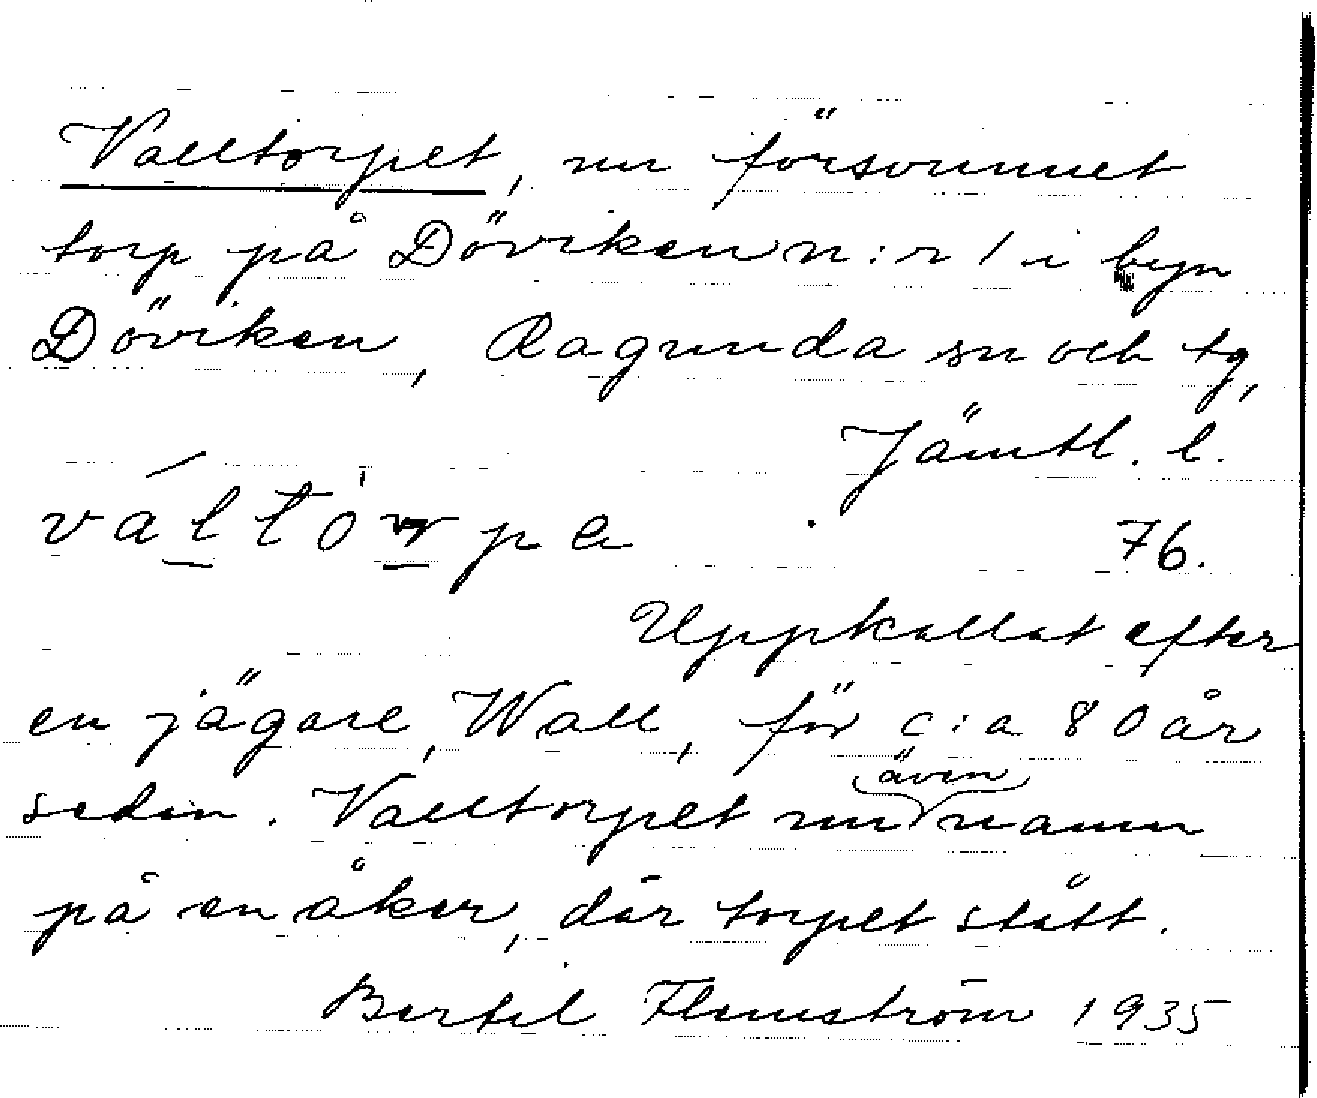 Valltorpet, nu försvunnet
torp på Döviken n:r 1 i byn
Döviken, Ragunda sn och tg,
Jämtl. l.
76.
Uppkallat efter
en jägare, Wall, för c:a 80 år
sedan. Valltorpet nu även namn
på en åker, där torpet stått.
Bertil Flemström 1935